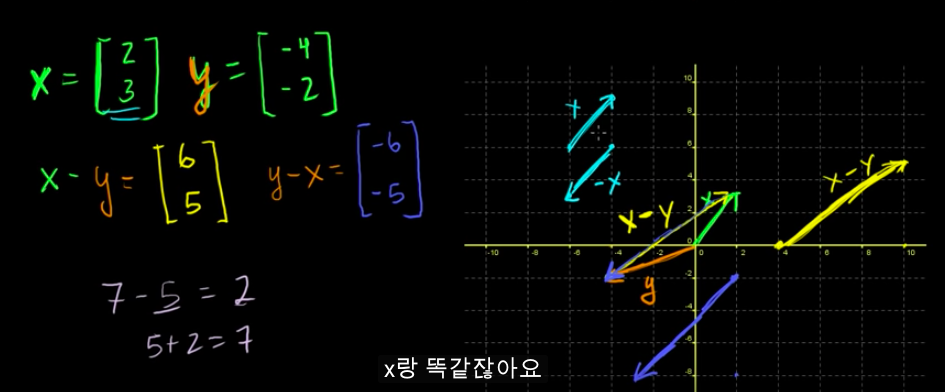 x = [2 3] y = [-4 -2]
x - y = [6 5] y - x = [-6 -5]
7 - 5 = 2
5 + 2 = 7
x
-x
x - y
x
y
x - y
10
8
6
4
2
0
-2
-4
-6
-8
-10 -8 -6 -4 -2 0 2 4 6 8 10
x랑 똑같잖아요